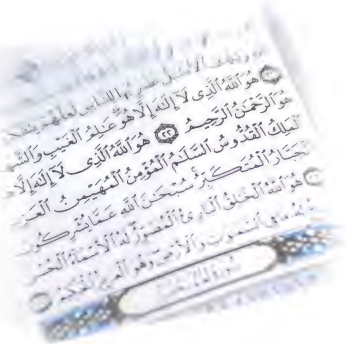 ٱلْأَمْثَٰلُ نَضْرِبُهَا لِلنَّاسِ لَعَلَّهُمْ
هُوَ ٱللَّهُ ٱلَّذِى لَآ إِلَٰهَ إِلَّا هُوَ عَٰلِمُ ٱلْغَيْبِ وَٱلشَّهَ
هُوَ ٱلرَّحْمَٰنُ ٱلرَّحِيمُ ٢٢ هُوَ ٱللَّهُ ٱلَّذِى لَآ إِلَٰهَ إِلَّا
ٱلْمَلِكُ ٱلْقُدُّوسُ ٱلسَّلَٰمُ ٱلْمُؤْمِنُ ٱلْمُهَيْمِنُ ٱلْعَزِ
جَبَّارُ ٱلْمُتَكَبِّرُ سُبْحَٰنَ ٱللَّهِ عَمَّا يُشْرِكُونَ
هُوَ ٱللَّهُ ٱلْخَٰلِقُ ٱلْبَارِئُ ٱلْمُصَوِّرُ لَهُ ٱلْأَسْمَآءُ ٱلْحُسْ
مَا فِى ٱلسَّمَٰوَٰتِ وَٱلْأَرْضِ وَهُوَ ٱلْعَزِيزُ ٱلْحَكِيمُ